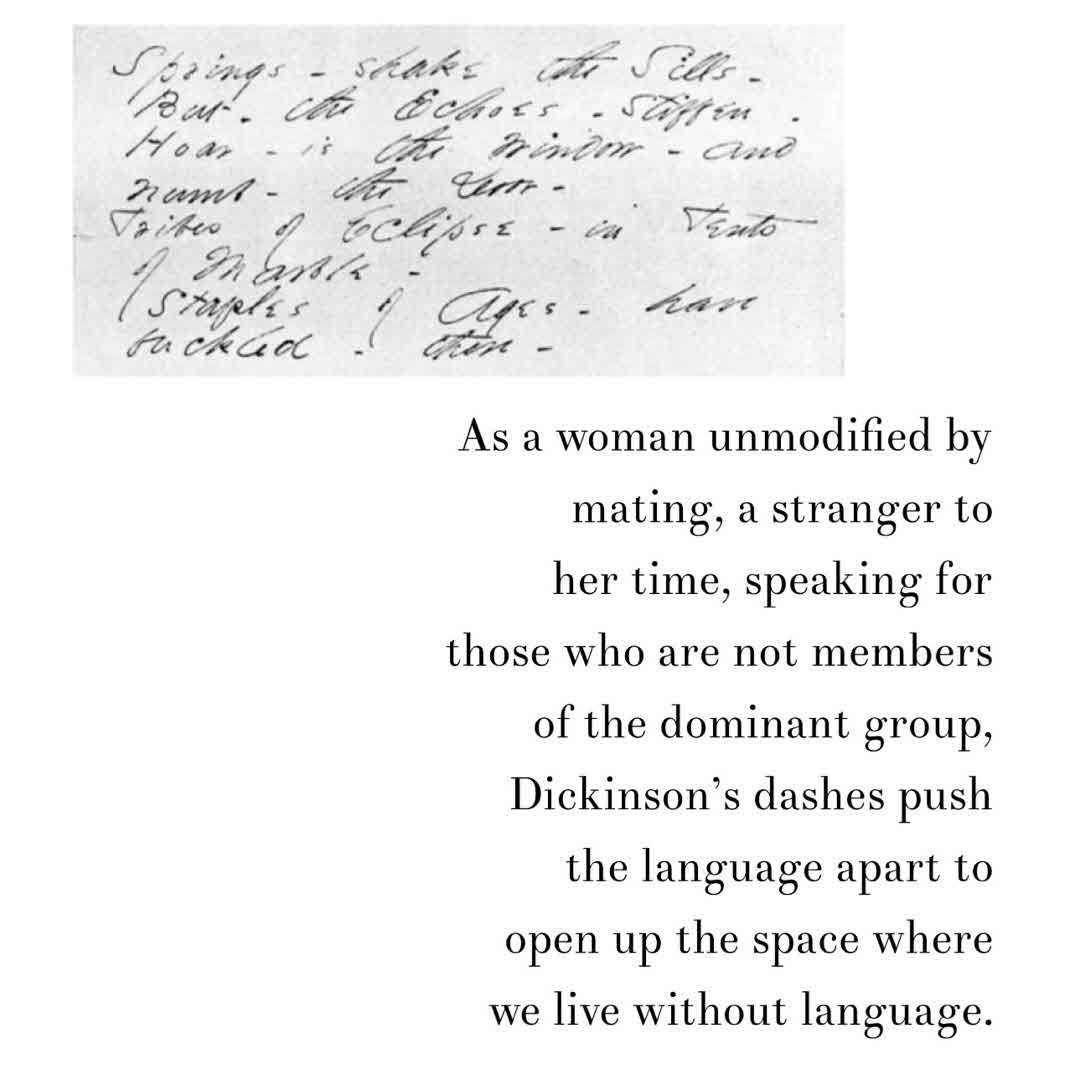 Springs - shake the Sills -
But - the Echoes - stiffen -
Hoar - is the Window - and
numb - the Door -
Tribes of Eclipse - in Tents
of Marble -
Staples of Ages - have
buckled - there -
As a woman unmodified by
mating, a stranger to
her time, speaking for
those who are not members
of the dominant group,
Dickinson’s dashes push
the language apart to
open up the space where
we live without language.